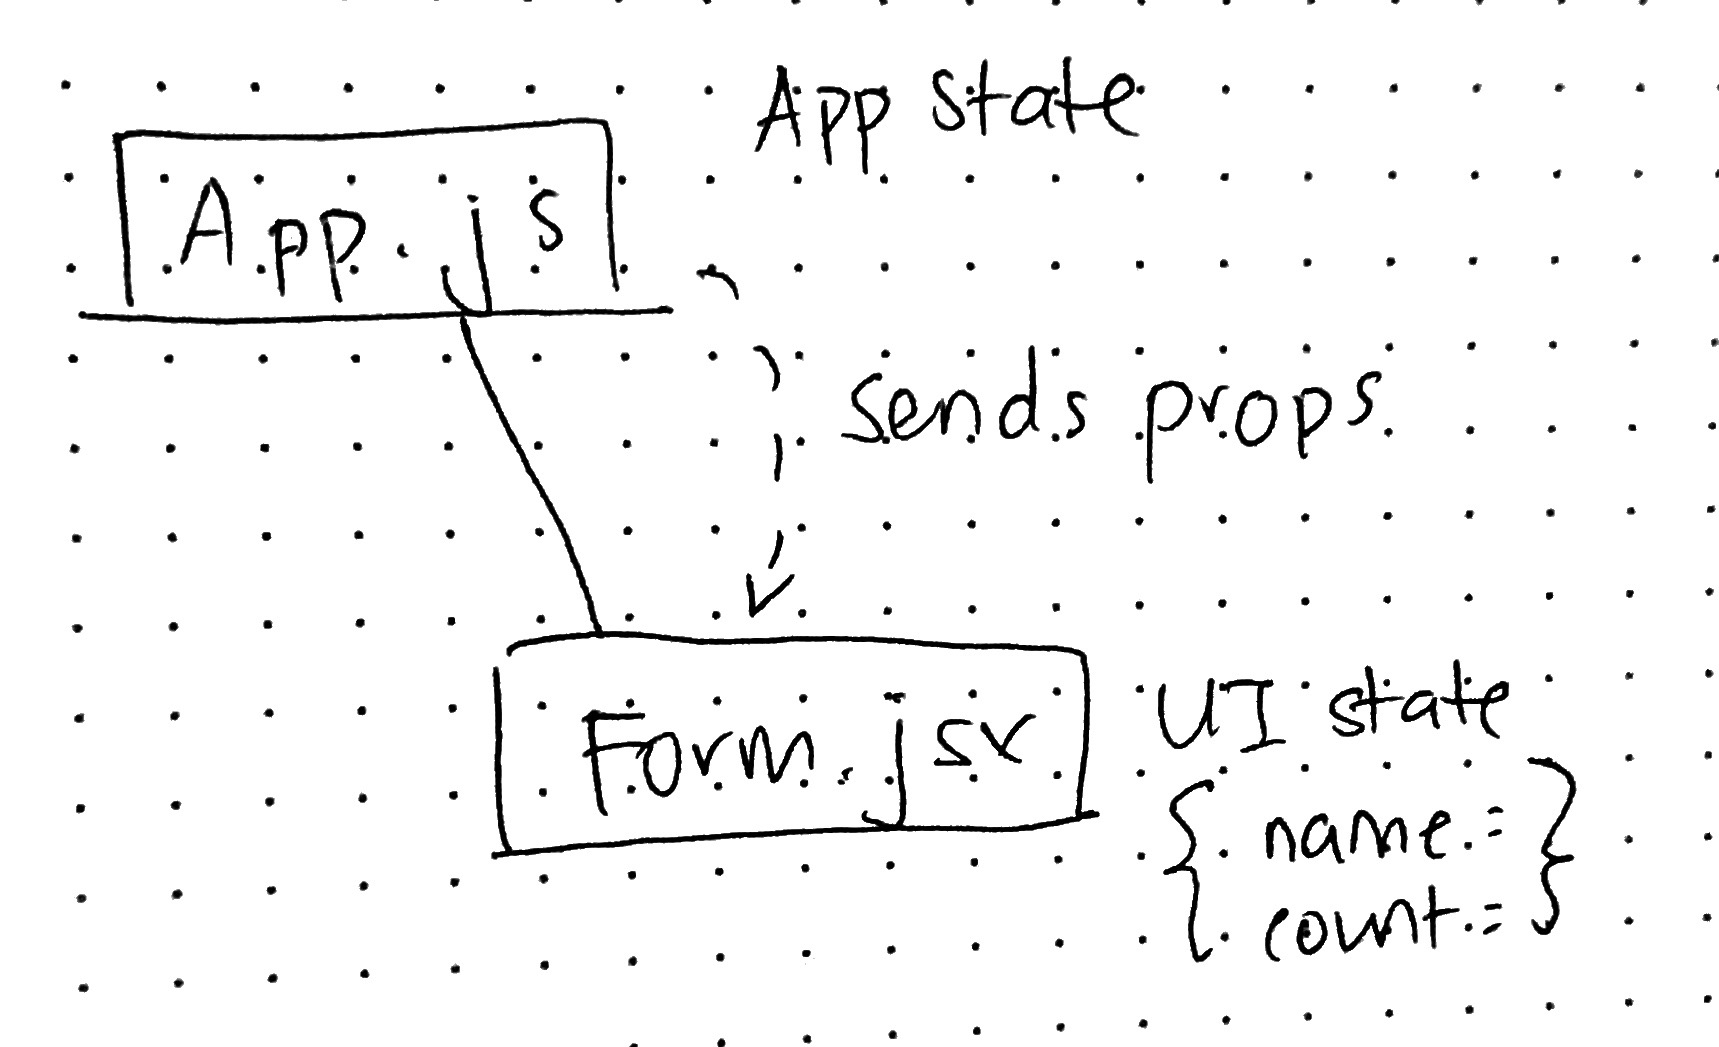 App state
App.js
sends props
Form.jsx
UI state
{ name: }
{ count: }